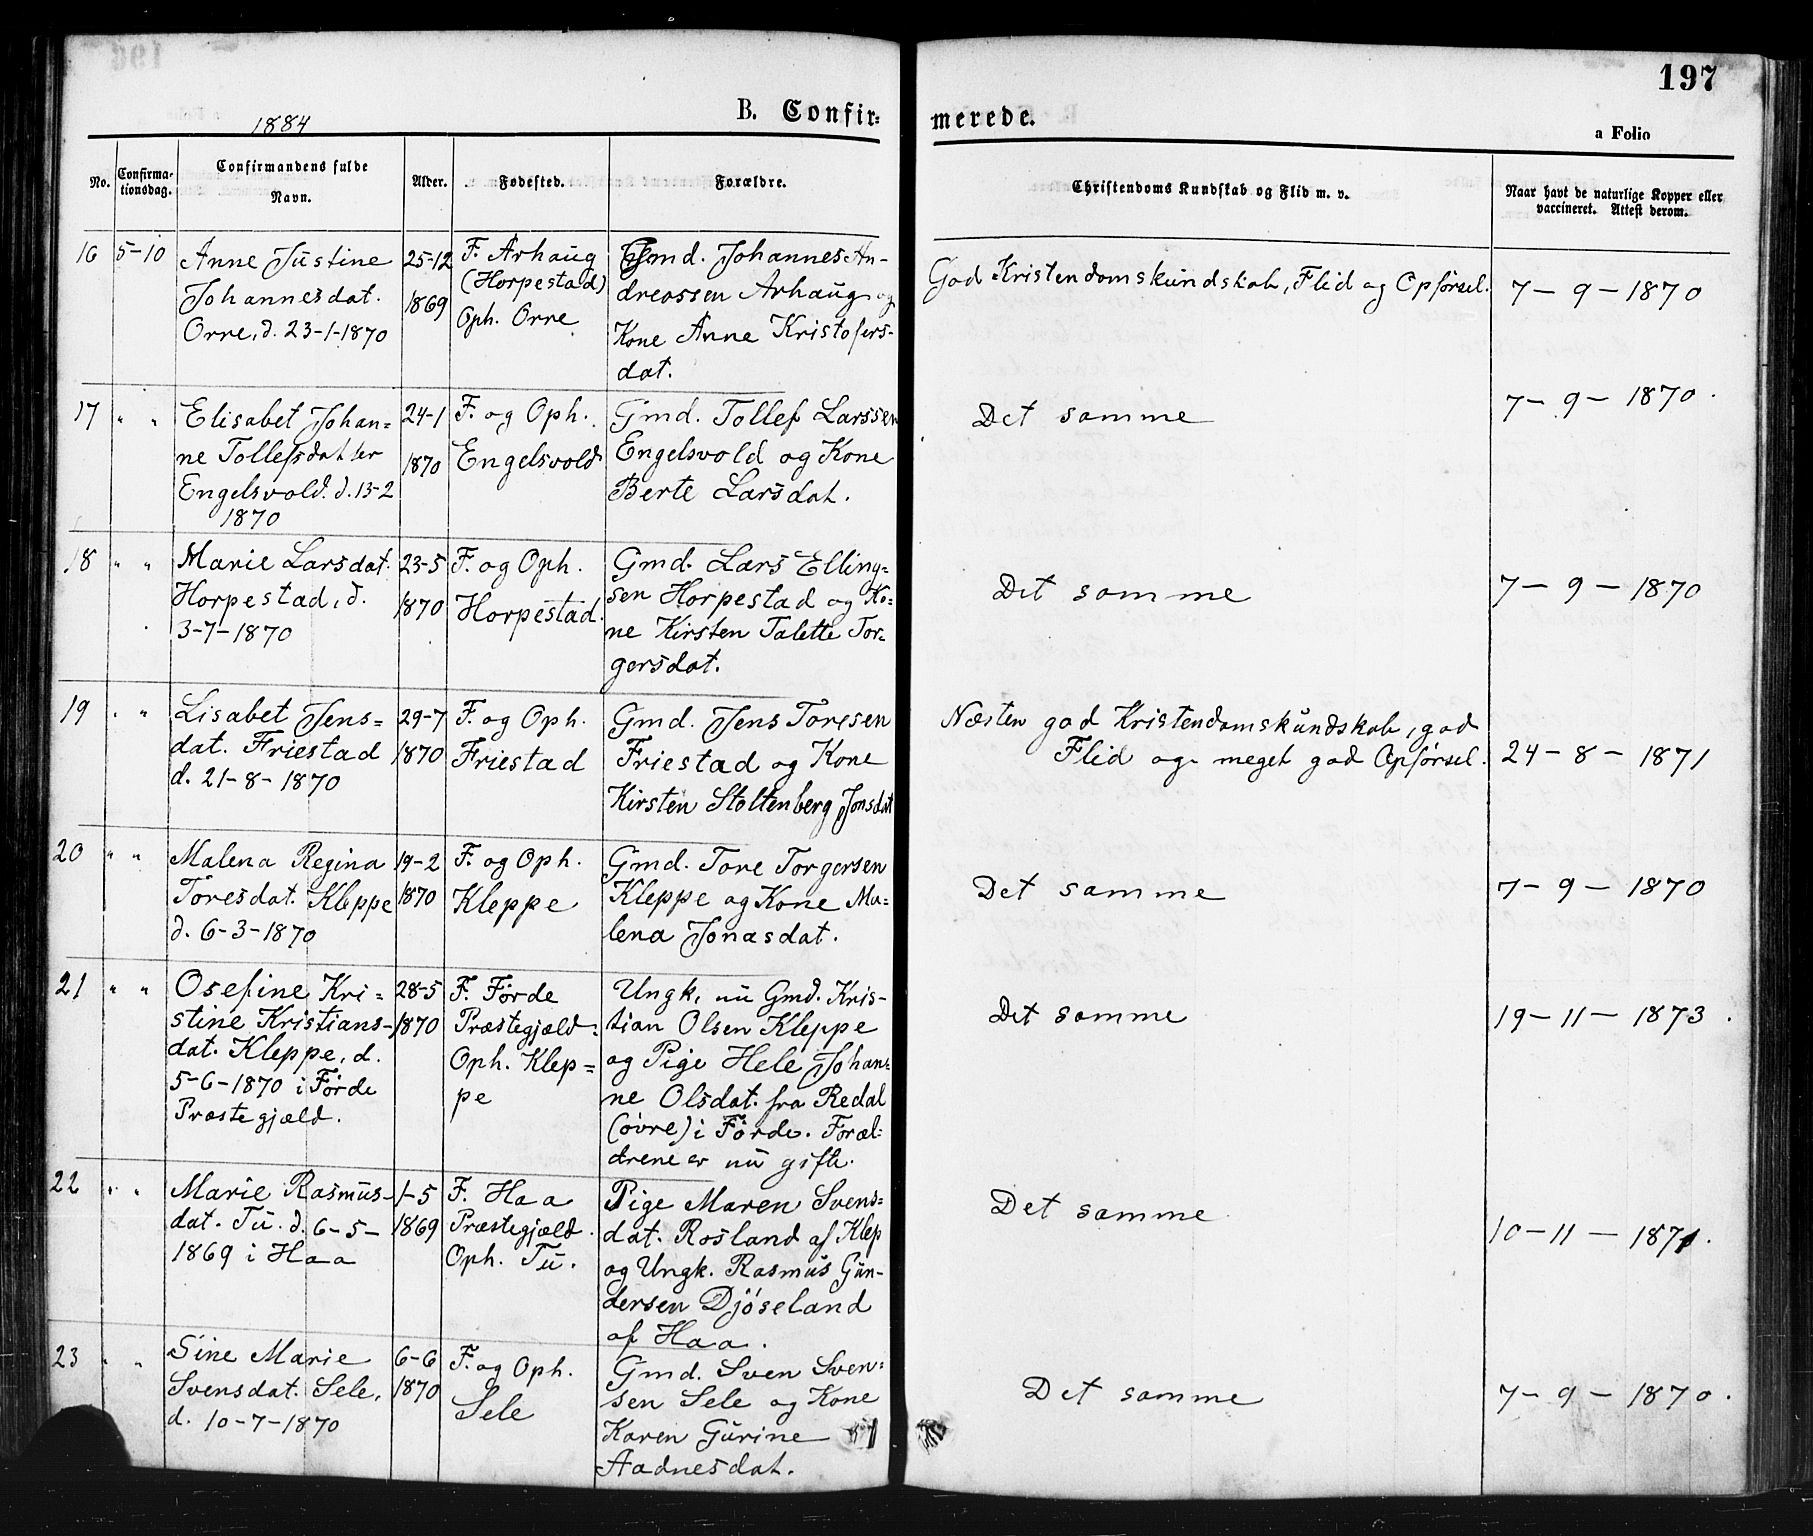 197
1884
B. Confir= merede.
a Folio
No.
Confirma-
tionsdag.
Confirmandens fulde
Navn.
Alder.
Fødested.
Forældre.
Christendoms Kundskab og Flid m. v.
Naar havt de naturlige Kopper eller
vaccineret. Attest derom.
16
5-10
Anne Justine
Johannesdat.
Orre, d. 23-1-1870
25-12
1869
F. Arhaug
(Horpestad)
Oph. Orre
Gmd. Johannes An-
dreassen Arhaug og
Kone Anne Kristofers-
dat.
God Kristendomskundskab, Flid og Opførsel.
7-9-1870
17
" "
Elisabet Johan=
ne Tollefsdatter
Engelsvold. d. 13-2
1870
24-1
1870
F. og Oph.
Engelsvold
Gmd. Tollef Larssen
Engelsvold og Kone
Berte Larsdat.
Det samme
7-9-1870.
18
" "
Marie Larsdat.
Horpestad, d.
3-7-1870
23-5
1870
F. og Oph.
Horpestad.
Gmd. Lars Elling=
sen Horpestad og Ko=
ne Kirsten Talette Tor=
gersdat.
Det samme
7-9-1870
19
" "
Lisabet Jens=
dat. Friestad
d. 21-8-1870
29-7
1870
F. og Oph.
Friestad
Gmd. Jens Toresen
Friestad og Kone
Kirsten Stoltenberg Jonsdat
Næsten god Kristendomskundskab, god
Flid og meget god Opførsel.
24-8-1871
20
" "
Malena Regina
Toresdat. Kleppe
d. 6-3-1870
19-2
1870
F. og Oph.
Kleppe
Gmd. Tore Torgersen
Kleppe og Kone Ma=
lena Jonasdat.
Det samme
7-9-1870
21
" "
Osefine Kri=
stine Kristians-
dat. Kleppe, d.
5-6-1870 i Førde
Præstegjæld.
28-5
1870
F. Førde
Præstegjæld.
Oph. Klep=
pe
Ungk. nu Gmd. Kris-
tian Olsen Kleppe
og Pige Hele Johan=
ne Olsdat. fra Redal
(øvre) i Førde. Foræl=
drene er nu gifte.
Det samme
19-11-1873.
22
" "
Marie Rasmus-
dat. Tu. d. 6-5-
1869 i Haa
1-5
1869
F. Haa
Præstegjæld.
Oph. Tu.
Pige Maren Svens=
dat. Rosland af Klep
og Ungk. Rasmus Gun-
dersen Djøseland
af Haa.
Det samme
10-11-1871.
23
" "
Sine Marie
Svensdat. Sele,
d. 10-7-1870
6-6
1870
F. og Oph.
Sele
Gmd. Sven Sven=
sen Sele og Kone
Karen Gurine
Aadnesdat.
Det samme
7-9-1870.